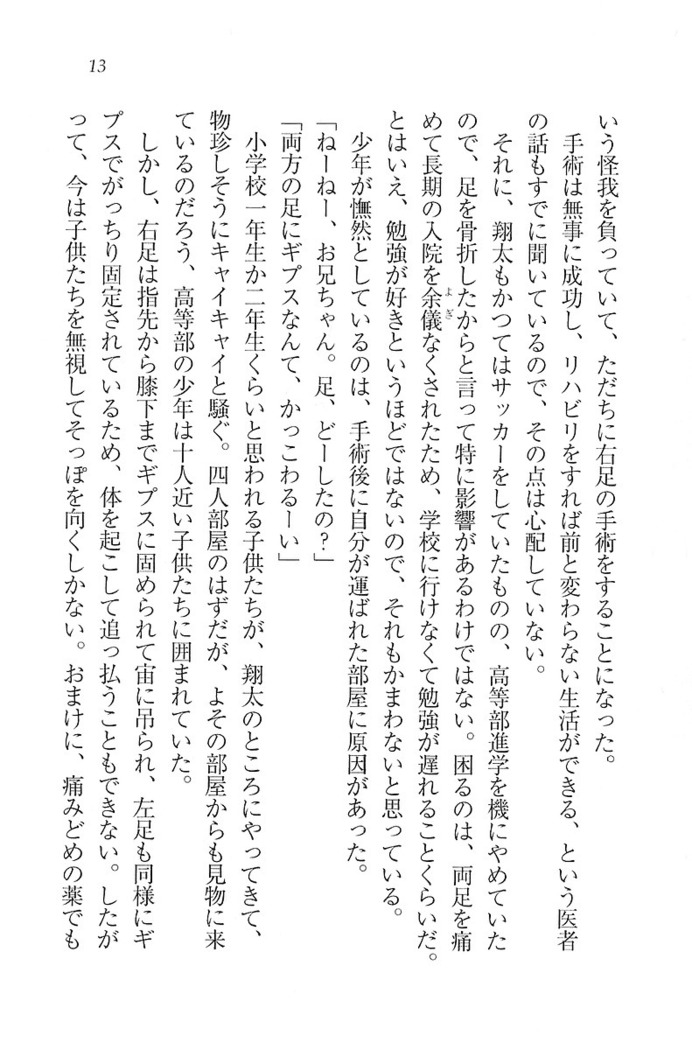 13
いう怪我を負っていて、ただちに右足の手術をすることになった。
　手術は無事に成功し、リハビリをすれば前と変わらない生活ができる、という医者
の話もすでに聞いているので、その点は心配していない。
　それに、翔太もかつてはサッカーをしていたものの、高等部進学を機にやめていた
ので、足を骨折したからと言って特に影響があるわけではない。困るのは、両足を痛
めて長期の入院を余儀なくされたため、学校に行けなくて勉強が遅れることくらいだ。
よぎ
とはいえ、勉強が好きというほどではないので、それもかまわないと思っている。
　少年が憮然としているのは、手術後に自分が運ばれた部屋に原因があった。
「ねーねー、お兄ちゃん。足、どーしたの？」
「両方の足にギプスなんて、かっこわるーい」
　小学校一年生か二年生くらいと思われる子供たちが、翔太のところにやってきて、
物珍しそうにキャイキャイと騒ぐ。四人部屋のはずだが、よその部屋からも見物に来
ているのだろう、高等部の少年は十人近い子供たちに囲まれていた。
　しかし、右足は指先から膝下までギプスに固められて宙に吊られ、左足も同様にギ
プスでがっちり固定されているため、体を起こして追っ払うこともできない。したが
って、今は子供たちを無視してそっぽを向くしかない。おまけに、痛みどめの薬でも